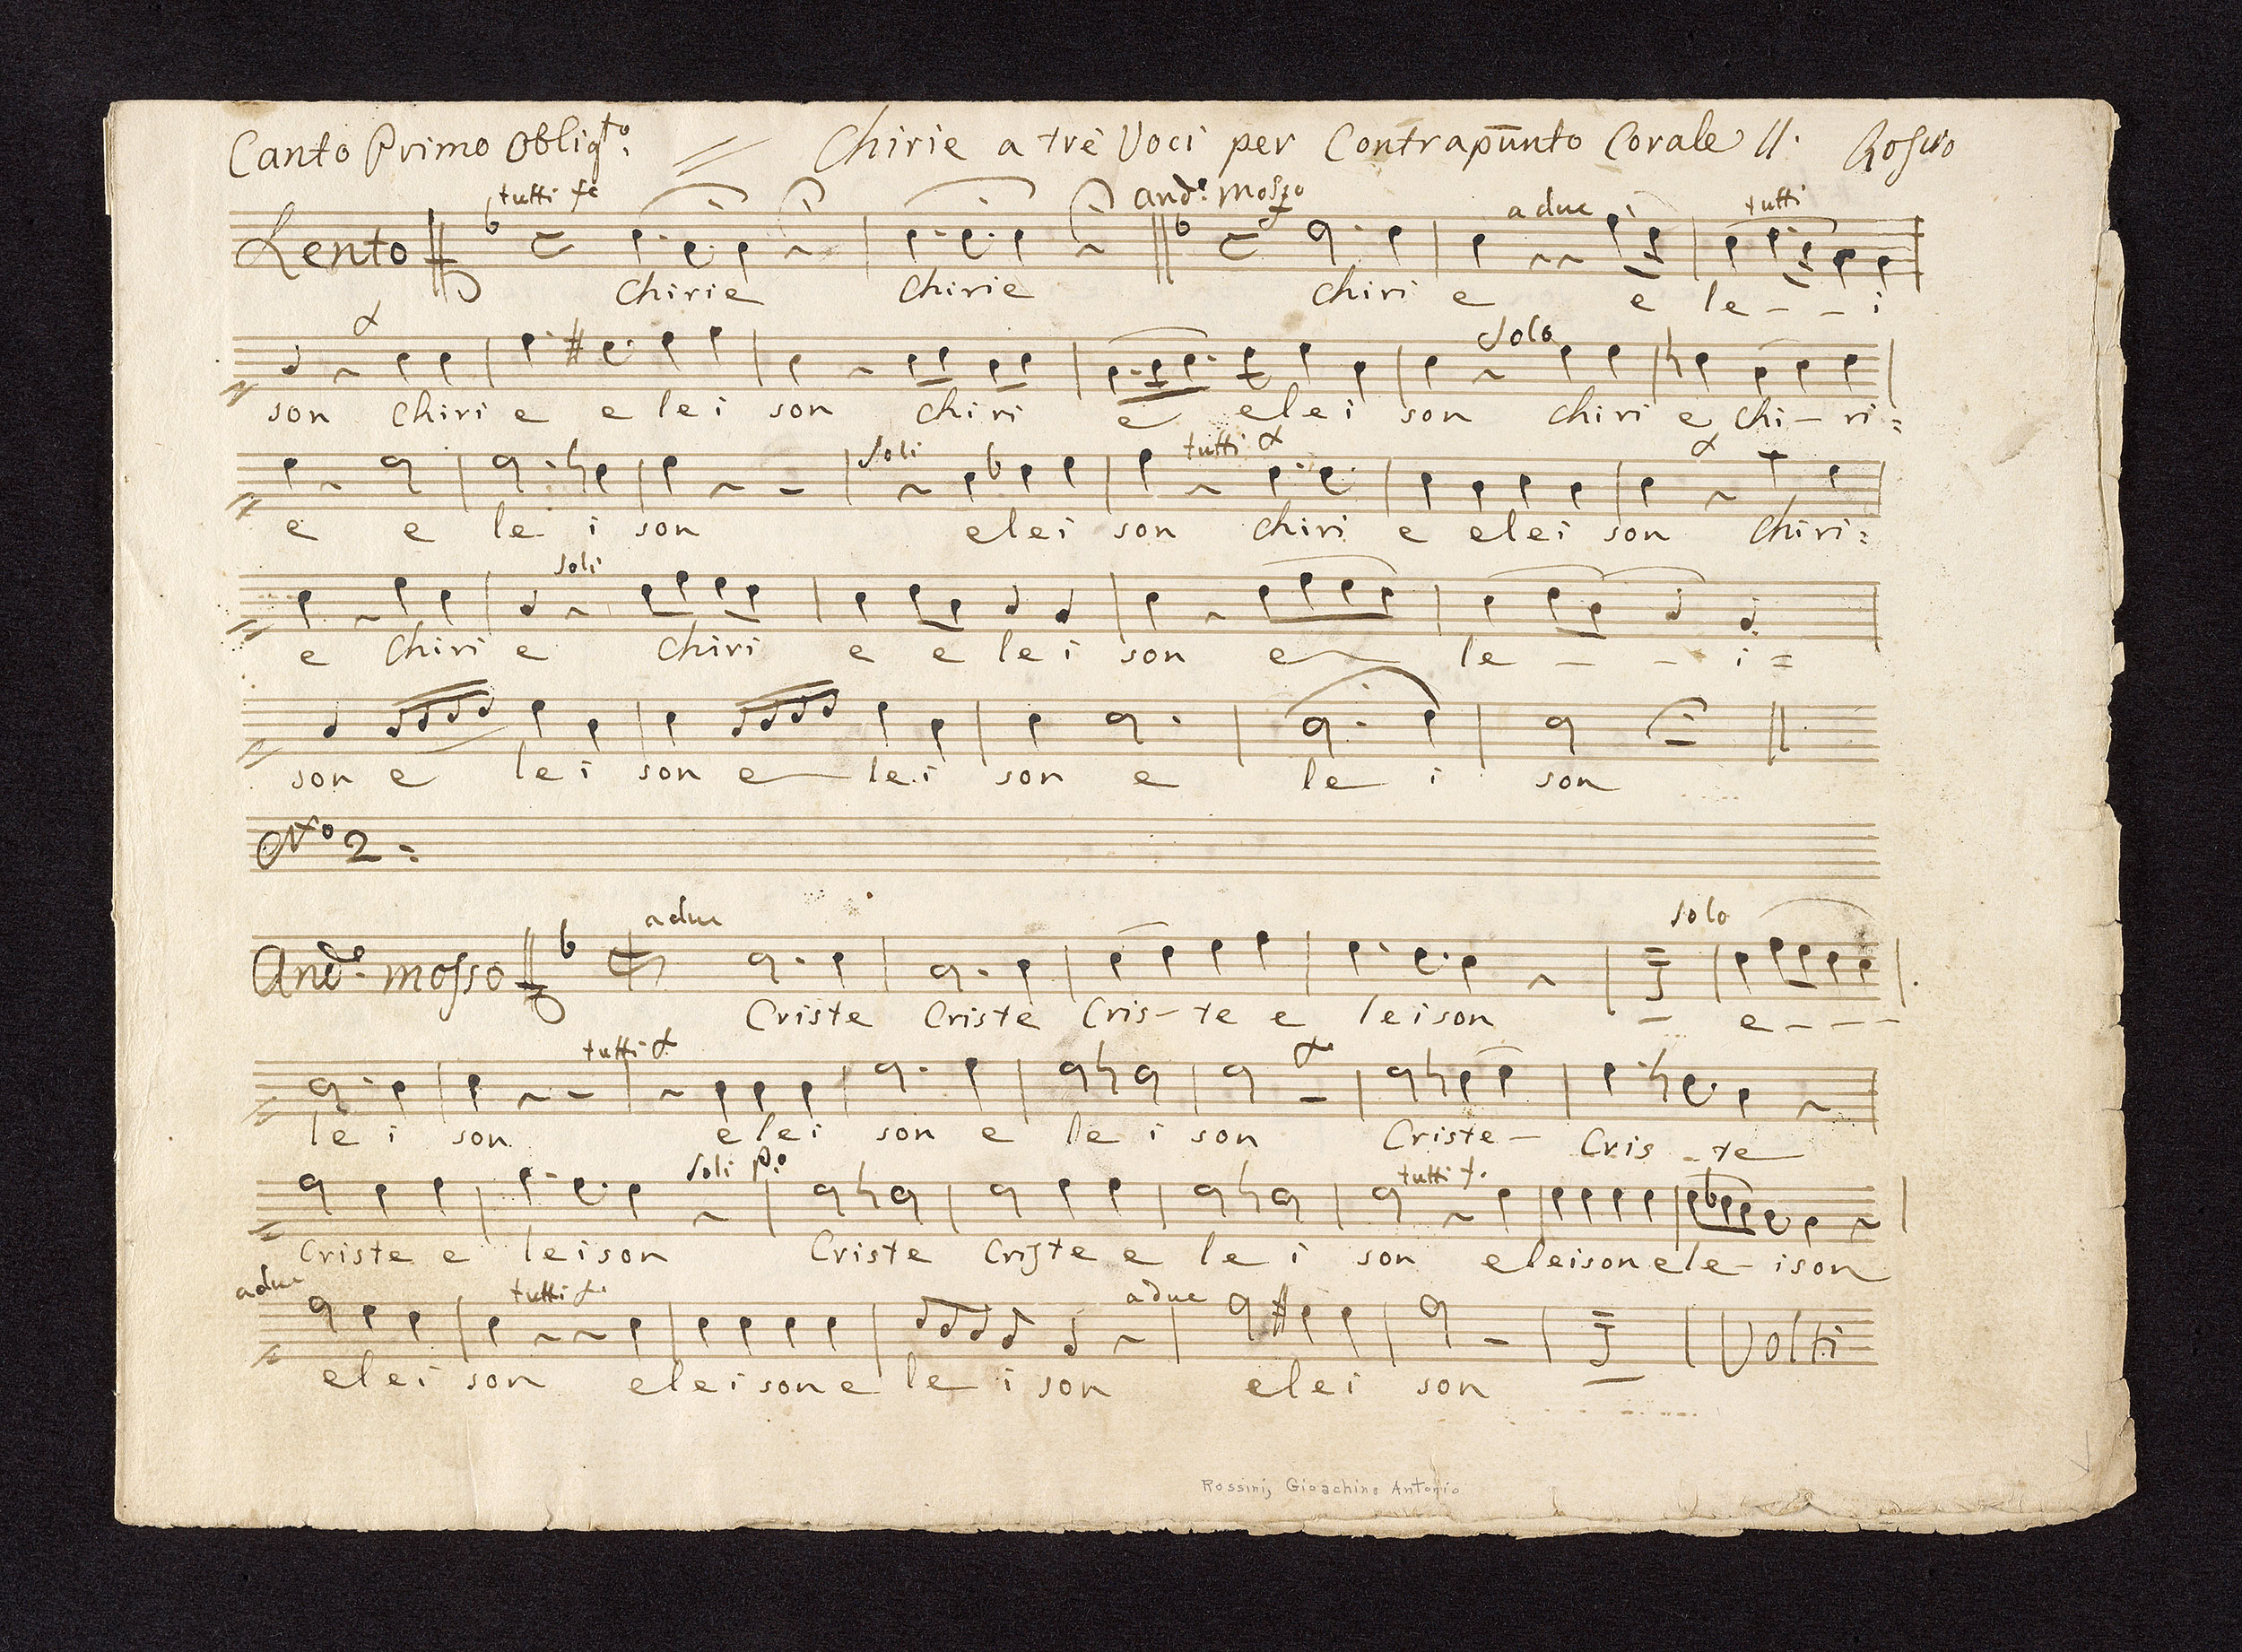 Canto Primo Obligto. // Chirie a tre Voci per Contrapunto Corale //.
tutti fe And.e mosso a due tutti
Lento
Chirie Chirie chiri e e le - - i
Solo
son chiri e e le i son chiri e elei son chiri e chi - ri =
soli tutti f
e e le i son elei son chiri e elei son chiri =
soli
e chiri e chiri e e lei son e le - - i =
son e lei son e lei son e le i son
No 2 =
a due solo
And.e mosso
Criste Criste Cris - te e leison - e - - - -
tutti f
le i son elei son e le i son Criste - Cris - te
soli P.o tutti f.
Criste e leison Criste Criste e le i son eleison ele - ison
a due tutti f. a due
Volti
elei son eleison e le i son elei son
Rossini, Gioachino Antonio